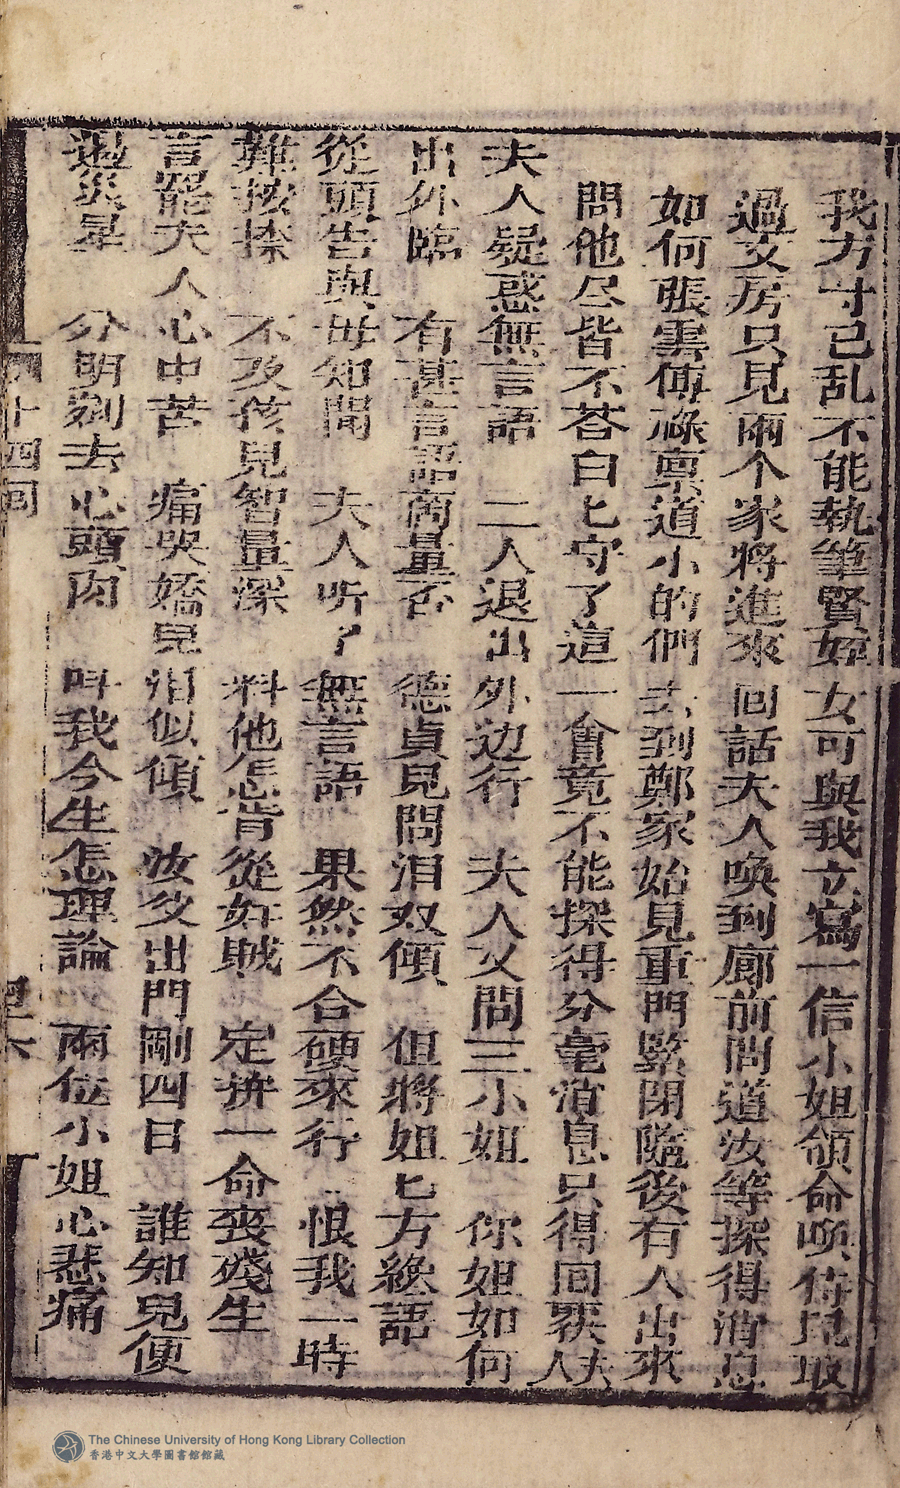 我方寸已乱不能執筆賢姪女可與我立寫一信小姐領命喚侍兒取
過文房只見兩个家將進來回話夫人喚到廊前問道汝等探得消息
如何張雲傅祿禀道小的們去到鄭家始見重門緊閉隨後有人出來
問他尽皆不荅白匕守了這一會竟不能探得分毫消息只得回覆夫人
夫人疑惑無言語 二人退出外边行 夫人又問三小姐 你姐如何
出外臨 有甚言語商量否 德貞見問泪双傾 但將姐匕方纔語
從頭告與毋知聞 夫人听了無言語 果然不合硬來行 恨我一時
難按捺 不及孩兒智量深 料他怎肯從奸賊 定拚一命丧殘生
言罷夫人心中苦 痛哭嬌兒泪似傾 汝父出門剛四日 誰知兒便
遇災星 分明剜去心頭肉 呌我今生怎理論 兩位小姐心悲痛
十四回
The Chinese University of Hong Kong Library Collection
香港中文大學圖書館館藏